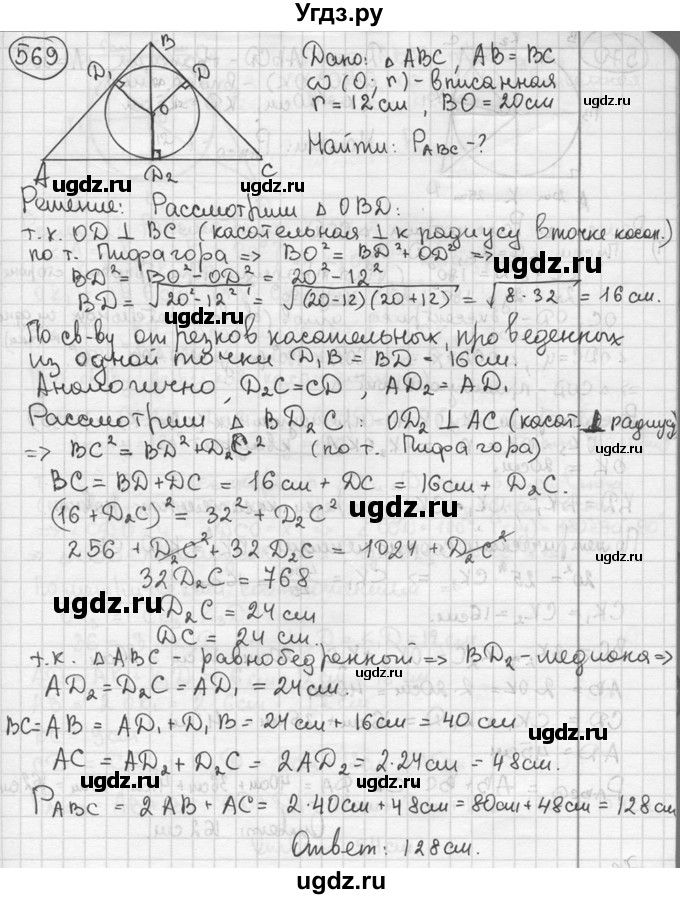 Угдз.ру
569
B
D₁
D
O
A
D₂
C
Дано: △ ABC, AB = BC
ω (O; r) - вписанная
r = 12 см, BO = 20 см
ugdz.ru
Найти: P_ABC - ?
ugdz.ru
ugdz.ru
Решение: Рассмотрим △ OBD:
т.к. OD ⊥ BC (касательная ⊥ к радиусу в точке касат.)
по т. Пифагора => BO² = BD² + OD² =>
BD² = BO² - OD² = 20² - 12²
ugdz.ru
ugdz.ru
BD = √20² - 12² = √(20-12)(20+12) = √8·32 = 16 см.
По св-ву отрезков касательных, проведенных
из одной точки D₁B = BD = 16 см.
Аналогично, D₂C = CD, AD₂ = AD₁
ugdz.ru
Рассмотрим △ BD₂C: OD₂ ⊥ AC (касат. ⊥ радиусу)
=> BC² = BD² + D₂C² (по т. Пифагора)
BC = BD + DC = 16 см + DC = 16 см + D₂C.
(16 + D₂C)² = 32² + D₂C²
ugdz.ru
256 + D₂C² + 32 D₂C = 1024 + D₂C²
ugdz.ru
32 D₂C = 768
ugdz.ru
D₂C = 24 см
DC = 24 см.
т.к. △ ABC - равнобедренный => BD₂ - медиана =>
AD₂ = D₂C = AD₁ = 24 см.
ugdz.ru
BC = AB = AD₁ + D₁B = 24 см + 16 см = 40 см
ugdz.ru
AC = AD₂ + D₂C = 2AD₂ = 2·24 см = 48 см.
P_ABC = 2AB + AC = 2·40 см + 48 см = 80 см + 48 см = 128 см
ugdz.ru
Ответ: 128 см.
ugdz.ru
ugdz.ru